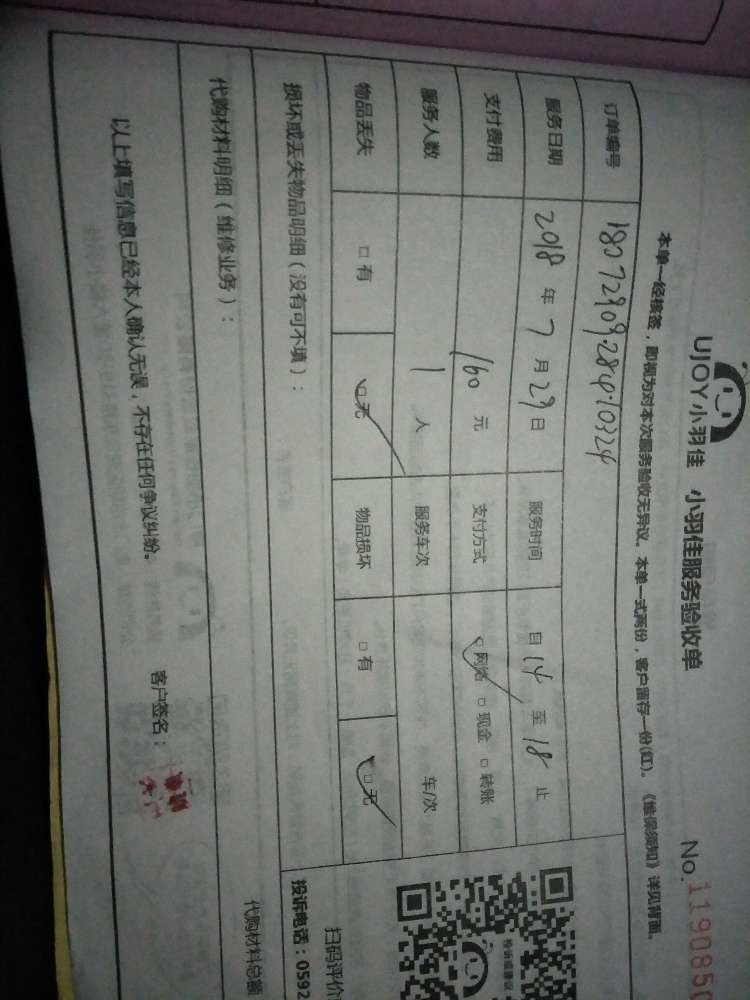 UJOY小羽佳 小羽佳服务验收单
No.1190850
本单一经核签，即视为对本次服务验收无异议。本单一式两份，客户留存一份(红)。《维保须知》详见背面。
订单编号 1807290928410324
服务日期 2018 年 7 月 29 日 服务时间 自 14 至 18 止
支付费用 160 元 支付方式 □ 网络 □ 现金 □ 转账
服务人数 1 人 服务车次 车/次
物品丢失 □ 有 □ 无 物品损坏 □ 有 □ 无
损坏或丢失物品明细（没有可不填）：
代购材料明细（维修业务）：
代购材料总额
以上填写信息已经本人确认无误，不存在任何争议纠纷。
客户签名：
投诉或建议
扫码评价
投诉电话：0592